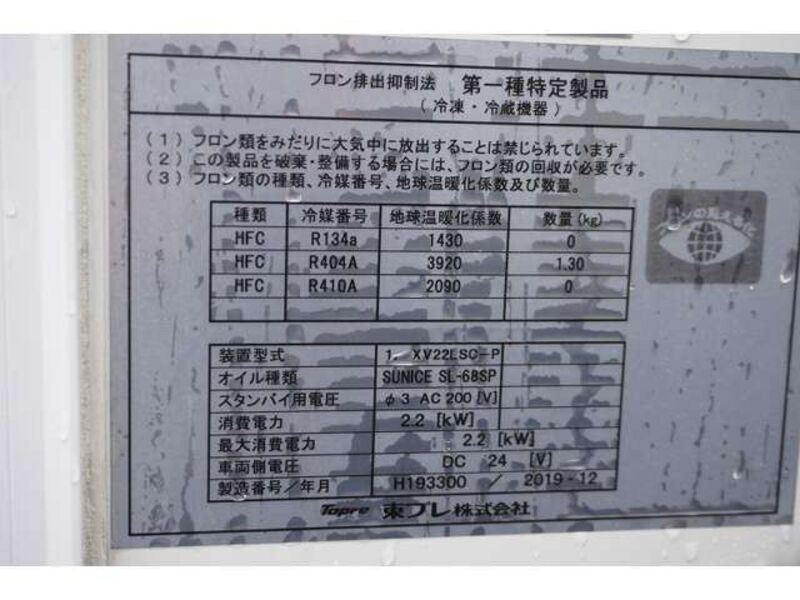 フロン排出抑制法 第一種特定製品
(冷凍・冷蔵機器)
(1) フロン類をみだりに大気中に放出することは禁じられています。
(2) この製品を破棄・整備する場合には、フロン類の回収が必要です。
(3) フロン類の種類、冷媒番号、地球温暖化係数及び数量。
フロンの見える化
種類 冷媒番号 地球温暖化係数 数量 (kg)
HFC R134a 1430 0
HFC R404A 3920 1.30
HFC R410A 2090 0
装置型式 1. XV22LSC-P
オイル種類 SUNICE SL-68SP
スタンバイ用電圧 φ3 AC 200 [V]
消費電力 2.2 [kW]
最大消費電力 2.2 [kW]
車両側電圧 DC 24 [V]
製造番号/年月 H193300 / 2019-12
Topre 東プレ株式会社